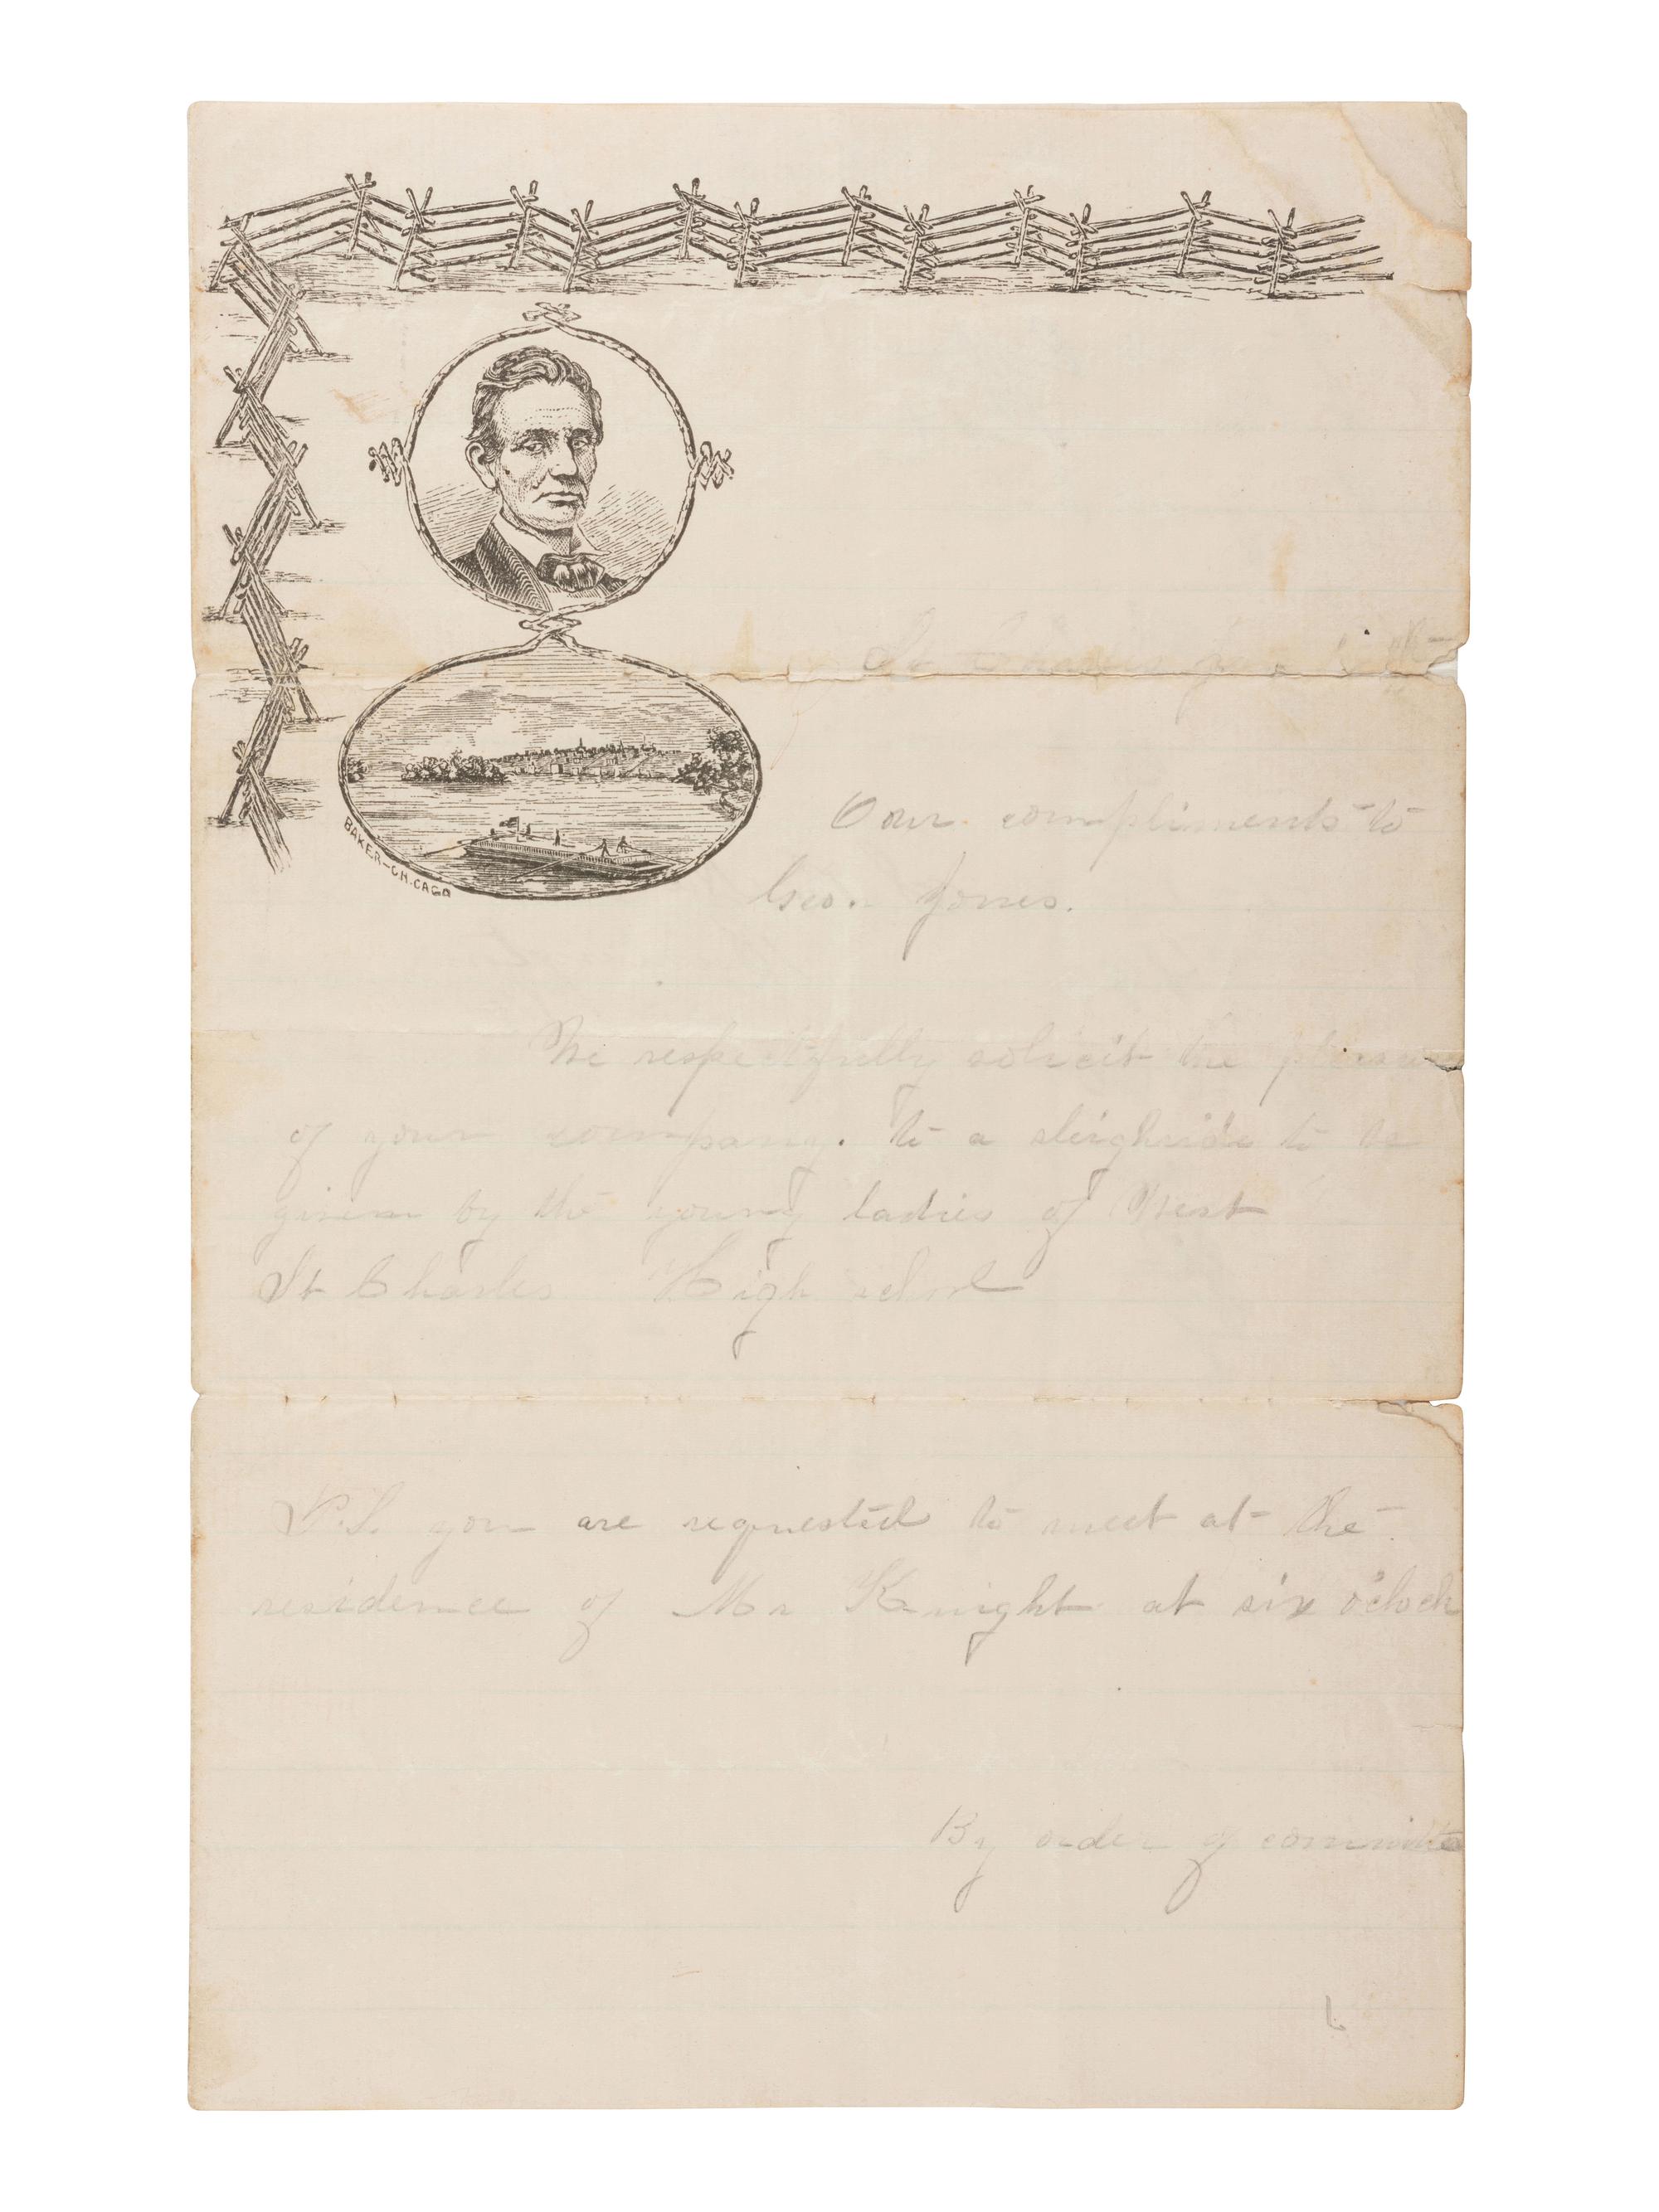 BAKER-CHICAGO
St Charles
Our compliments to
Geo. Jones.
We respectfully solicit the pleasure
of your company. to a sleighride to be
given by the young ladies of West
St Charles High school
P.S. you are requested to meet at the
residence of Mr Knight at six o'clock
By order of committe